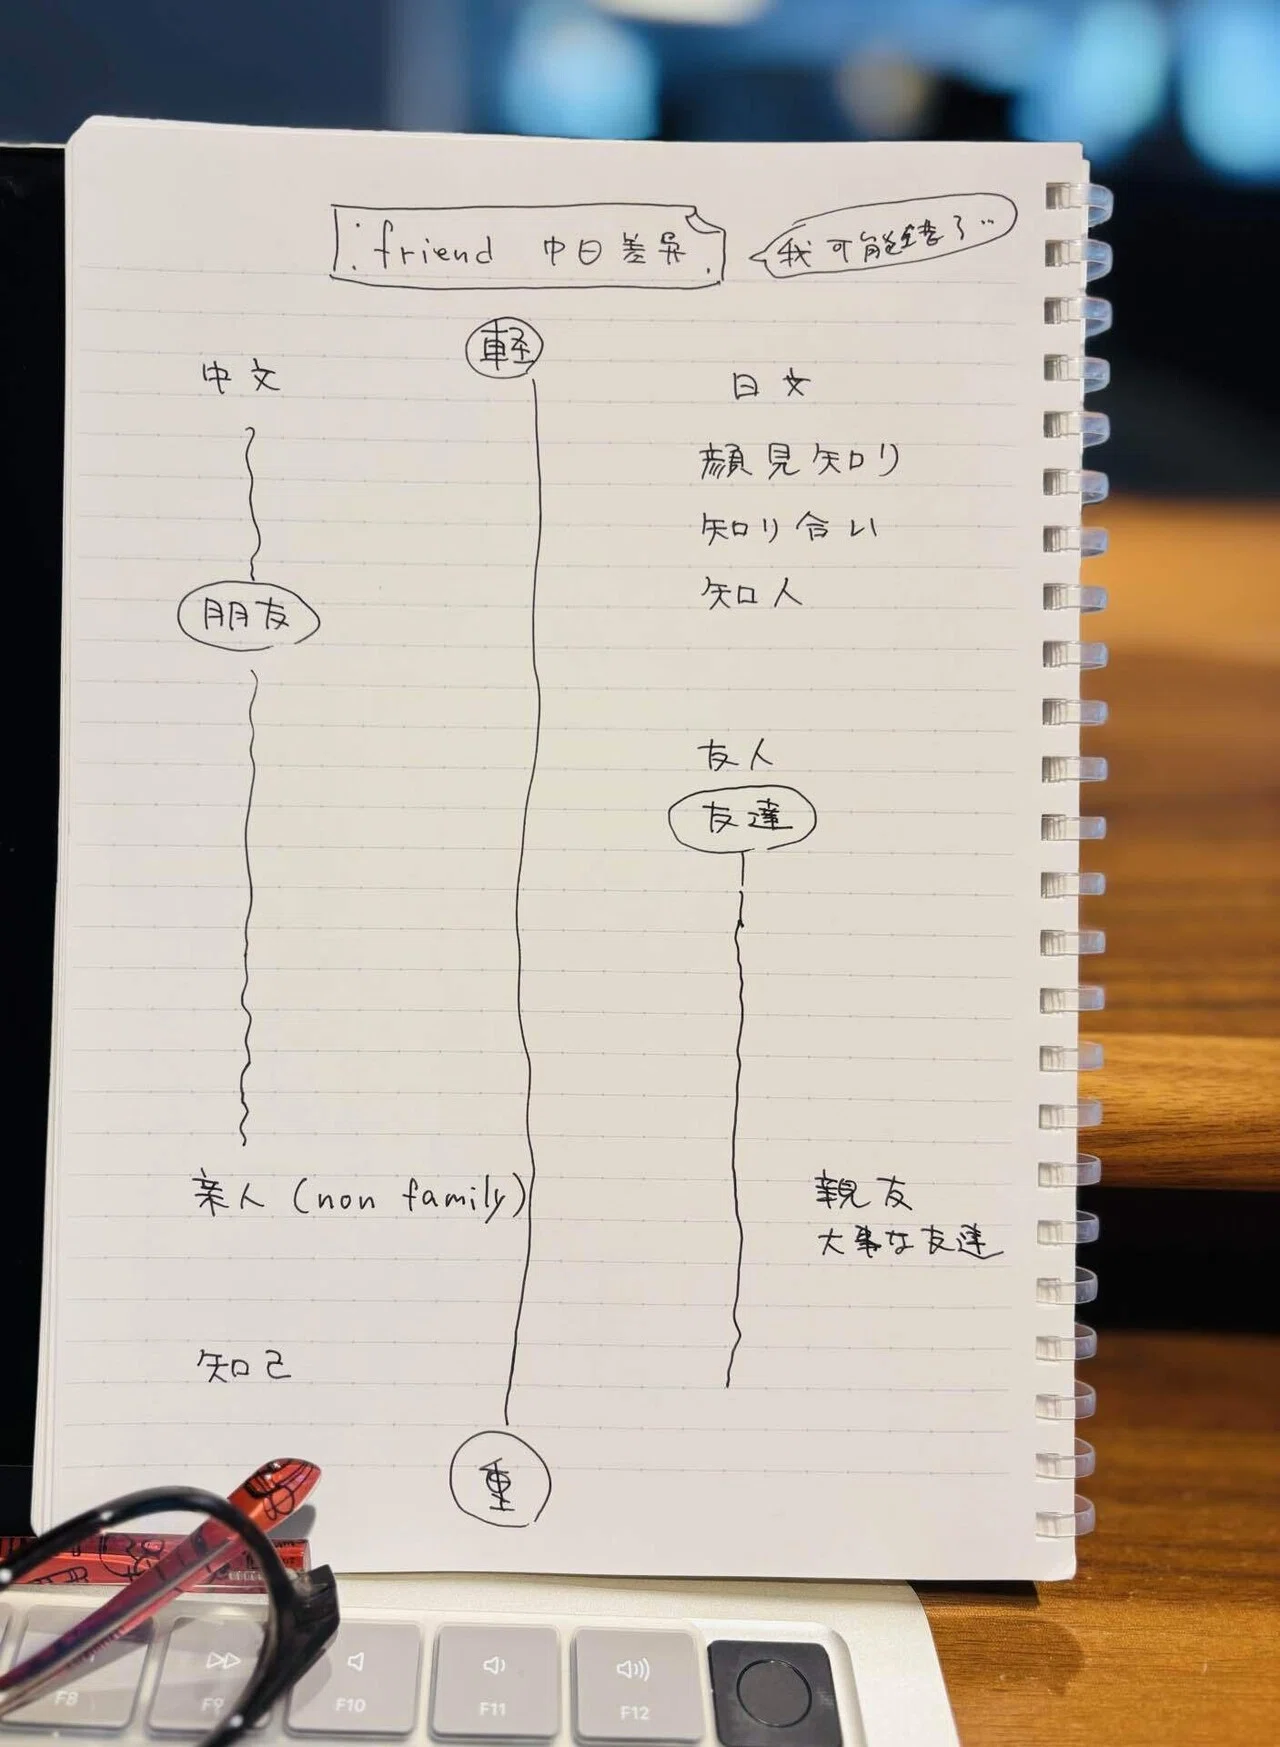 friend 中日差异
我可能错了
軽
中文
日文
顔見知り
知り合い
知人
朋友
友人
友達
亲人 (non family)
親友
大事な友達
知己
重
F8
F9
F10
F11
F12